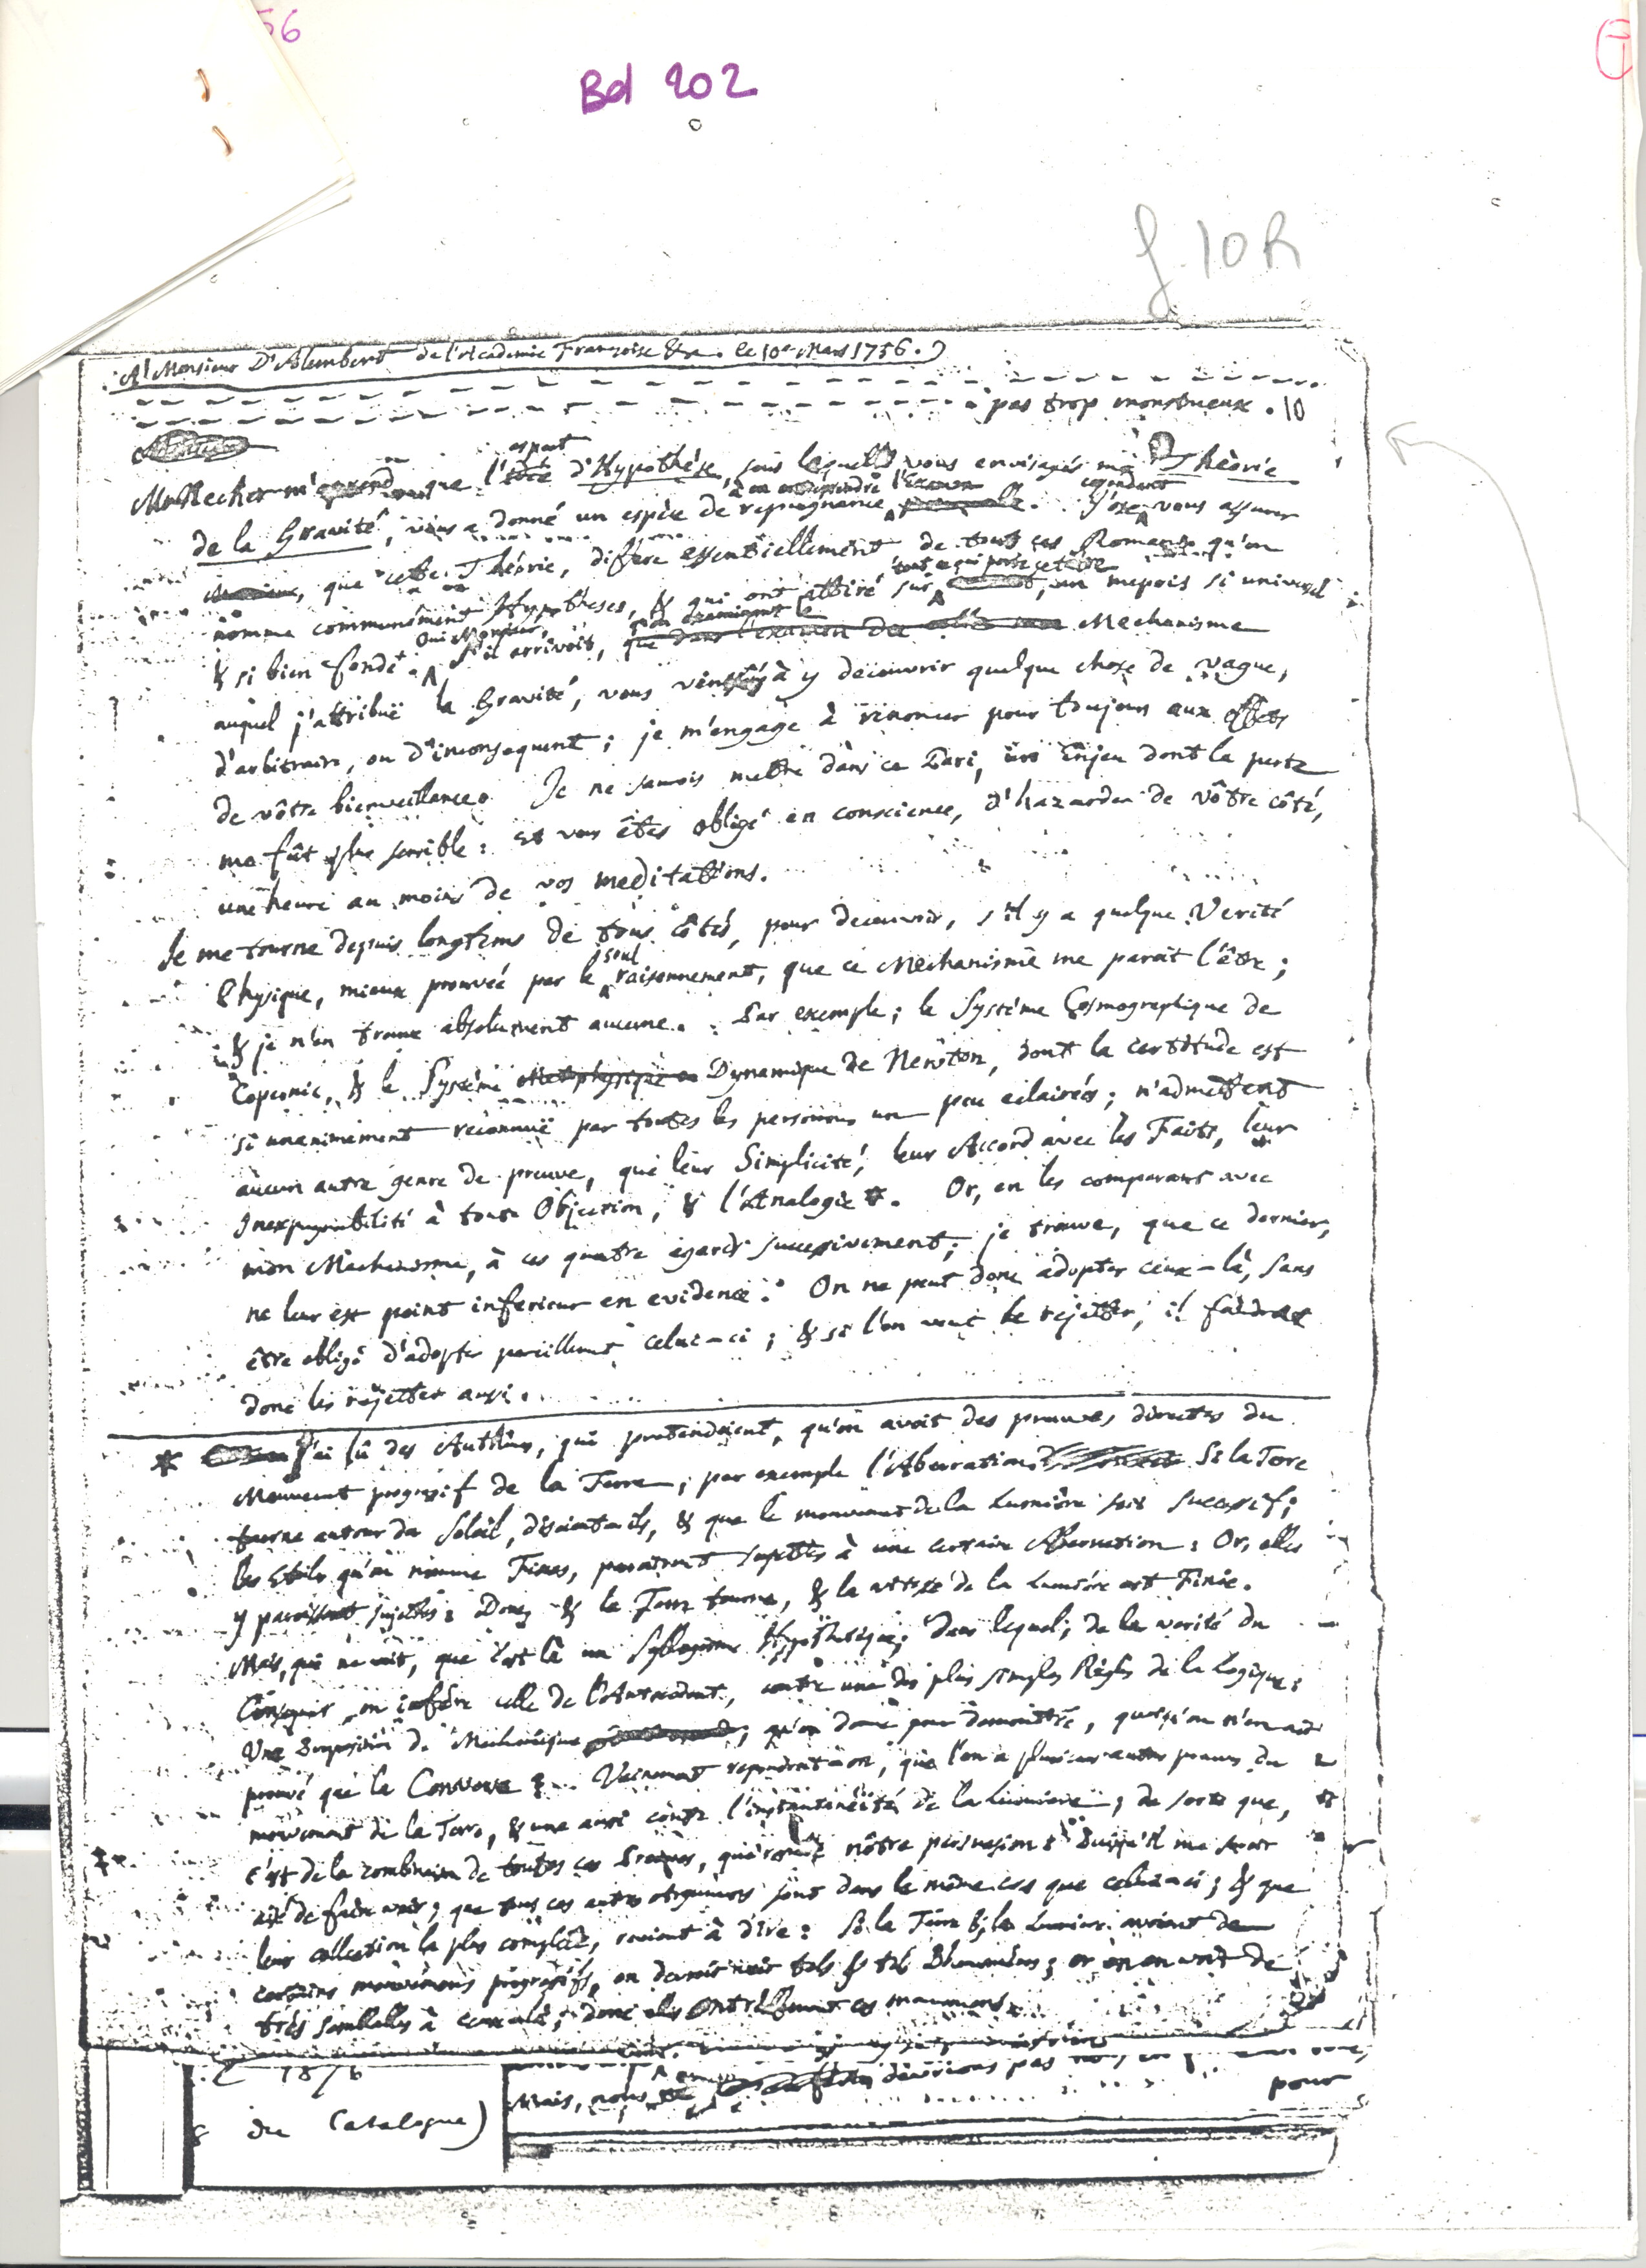 56
Bd 202
f. 10R
A Monsieur D'Alembert de l'Academie Françoise &c. le 10e Mars 1756.
pas trop monstrueux. 10
aspect
Mr Necker m'apprend que l'idée d'Hypothése, sous lequel vous envisagés ma Théorie
à en entreprendre l'Examen cependant
de la Gravité, vous a donné un espèce de repugnance. J'ose vous assurer
que cette Théorie, diffère essentiellement de tous ces Romans qu'on
tout ce qui porte ce titre
nomme communément Hypotheses, & qui ont attiré sur, un mepris si universel
Oui Monsieur, qu'en examinant le
& si bien fondé. S'il arrivoit, que dans l'examen du Mechanisme
auquel j'attribuë la Gravité, vous vinssiés à y decouvrir quelque chose de vague,
d'arbitraire, ou d'inconsequent; je m'engage à renoncer pour toujours aux effets
de vôtre bienveillance. Je ne saurois mettre dans ce Pari, un Enjeu dont la perte
me fût plus sensible: et vous êtes obligé en conscience, d'hazarder de vôtre côté,
une heure au moins de vos meditations.
Je me tourne depuis longtems de tous côtés, pour decouvrir, s'il y a quelque Verité
seul
Physique, mieux prouvée par le raisonnement, que ce Mechanisme me paroit l'être;
& je n'en trouve absolument aucune. Par exemple; le Systéme Cosmographique de
Copernic, & le Systéme Metaphysique ou Dynamique de Newton, dont la certitude est
si unanimement reconnuë par toutes les personnes un peu eclairées; n'admettent
aucun autre genre de preuve, que leur Simplicité, leur Accord avec les Faits, leur
Inexpugnabilité à toute Objection, & l'Analogie *. Or, en les comparant avec
mon Mechanisme, à ces quatre egards successivement; je trouve, que ce dernier,
ne leur est point inferieur en evidence. On ne peut donc adopter ceux-là, sans
être obligé d'adopter pareillement celui-ci; & si l'on veut le rejetter, il faudra
donc les rejetter aussi.
* J'ai lû des Autheurs, qui pretendoient, qu'on avoit des preuves directes du
Mouvement progressif de la Terre; par exemple l'Aberration. Si la Terre
tourne autour du Soleil, disoient-ils, & que le mouvement de la Lumière soit successif;
les Etoiles qu'on nomme Fixes, paroitront sujettes à une certaine Aberration: Or, elles
y paroissent sujettes: Donc, & la Terre tourne, & la vitesse de la Lumière est Finie.
Mais, qui ne voit, que c'est là un Syllogisme Hypothetique; dans lequel, de la verité du
Consequent, on infère celle de l'Antecedent, contre une des plus simples Règles de la Logique:
Une Proposition de Mechanique, qu'on donne pour demontrée, quoiqu'on n'en ait
prouvé que la Converse? Vainement repondroit-on, que l'on a plusieurs autres preuves du
mouvement de la Terre, & une aussi contre l'instantanéité de la Lumière; de sorte que,
c'est de la combinaison de toutes ces Preuves, que resulte nôtre persuasion: Puisqu'il me seroit
aisé de faire voir; que tous ces autres argumens sont dans le même cas que celui-ci; & que
leur collection la plus complète, revient à dire: Si la Terre & la Lumiere avoient de
certains mouvemens progressifs, on devroit voir tels & tels Phenomènes; or on en voit de
très semblables à ceux-là; donc elles ont réellement ces mouvemens.
1876
Mais, nous devrions pas
pour
du Catalogue)